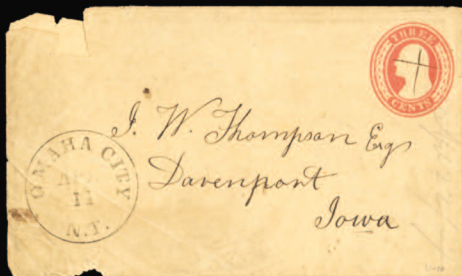 THREE
CENTS
J. W. Thompson Esq
Davenport
Iowa
OMAHA CITY
11
N.T.